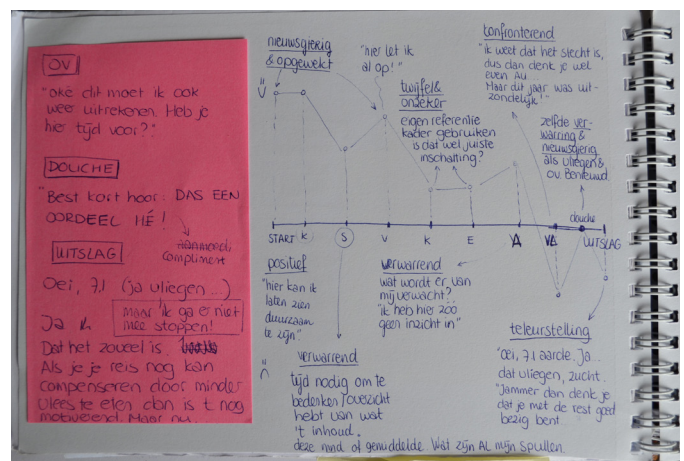 OV
"oké dit moet ik ook
weer uitrekenen. Heb je
hier tijd voor?"
DOUCHE
"Best kort hoor. DAS EEN
OORDEEL HÉ!
Aanname/
compliment
UITSLAG
Oei, 7,1 (ja vliegen...)
maar ik ga er niet
mee stoppen!
Ja
Dat het zoveel is.
Als je je reis nog kan
compenseren door minder
vlees te eten dan is 't nog
motiverend. Maar nu.
nieuwsgierig
& opgewekt
"hier let ik
al op!"
twijfel &
onzeker
eigen referentie
kader gebruiken
is dat wel juiste
inschatting?
confronterend
"ik weet dat het slecht is,
dus dan denk je wel
even Au...
Maar dit jaar was uit-
zonderlijk!"
zelfde ver-
warring &
nieuwsgierig
als vliegen &
OV. Benieuwd.
douche
START K S V K E VA UITSLAG
positief
"hier kan ik
laten zien
duurzaam
te zijn"
verwarrend
wat wordt er van
mij verwacht?
"ik heb hier zóó
geen inzicht in"
verwarrend
tijd nodig om te
bedenken/overzicht
hebt van wat
't inhoud.
deze mnd of gemiddelde. Wat zijn AL mijn spullen
teleurstelling
"Oei, 7,1 aarde. Ja...
dat vliegen, zucht.
"Jammer dan denk je
dat je met de rest goed
bezig bent...